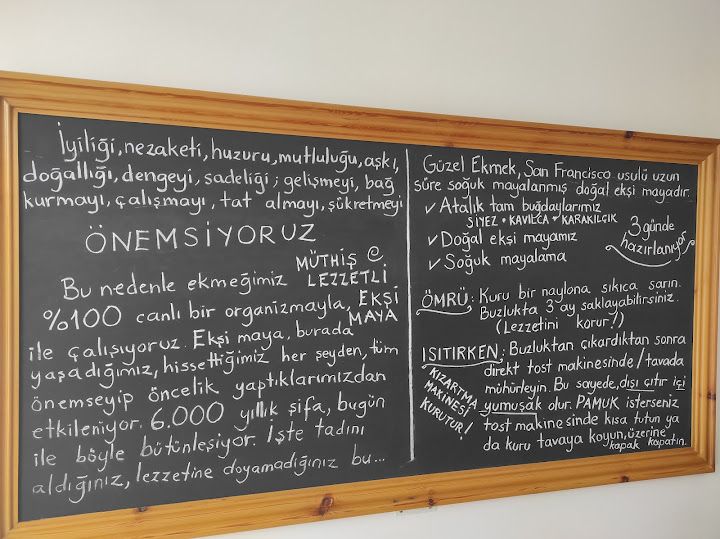 İyiliği, nezaketi, huzuru, mutluluğu, aşkı,
doğallığı, dengeyi, sadeliği; gelişmeyi, bağ
kurmayı, çalışmayı, tat almayı, şükretmeyi
ÖNEMSİYORUZ
Bu nedenle ekmeğimiz MÜTHİŞ LEZZETLİ
%100 canlı bir organizmayla, EKŞİ MAYA
ile çalışıyoruz. Ekşi maya, burada
yaşadığımız, hissettiğimiz her şeyden, tüm
önemseyip öncelik yaptıklarımızdan
etkileniyor. 6.000 yıllık şifa, bugün
ile böyle bütünleşiyor. İşte tadını
aldığınız, lezzetine doyamadığınız bu...
Güzel Ekmek, San Francisco usulü uzun
süre soğuk mayalanmış doğal ekşi mayadır.
✓ Atalık tam buğdaylarımız
SİYEZ • KAVILCA • KARAKILÇIK
✓ Doğal ekşi mayamız
✓ Soğuk mayalama
3 günde
hazırlanıyor
ÖMRÜ: Kuru bir naylona sıkıca sarın.
Buzlukta 3 ay saklayabilirsiniz.
(Lezzetini korur!)
ISITIRKEN; Buzluktan çıkardıktan sonra
direkt tost makinesinde/tavada
mühürleyin. Bu sayede, dışı çıtır içi
yumuşak olur. PAMUK isterseniz
tost makinesinde kısa tutun ya
da kuru tavaya koyun, üzerine
kapak kapatın.
KIZARTMA
MAKİNESİ
KURUTUR!